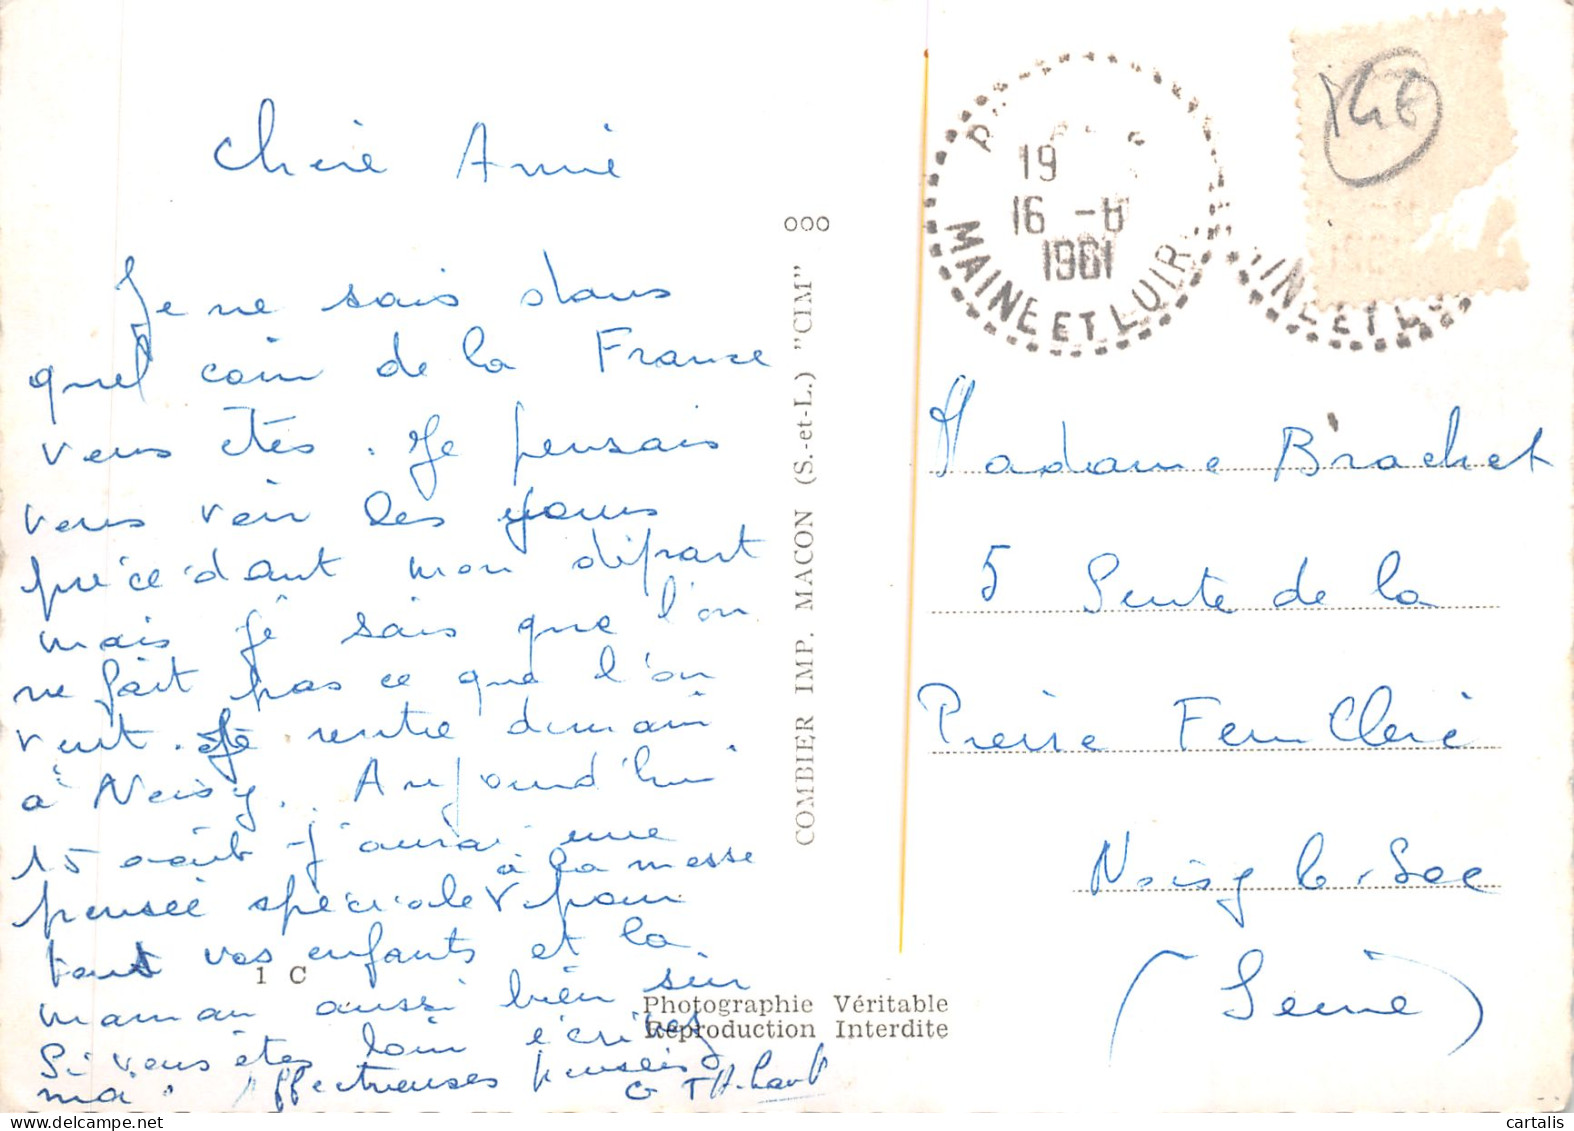 Chère Amie
Je ne sais dans
quel coin de la France
vous êtes. Je pensais
vous voir les jours
précédant mon départ
mais je sais que l'on
ne fait pas ce que l'on
veut. Je rentre demain
à Noisy. Aujourd'hui
15 août j'aurai une
à la messe
pensée spéciale V pour
tous vos enfants et la
maman aussi bien sûr
Si vous êtes loin écrivez
moi. Affectueuses pensées
G Thibault
1 C
OOO
COMBIER IMP. MACON (S.-et-L.) "CIM"
Photographie Véritable
Reproduction Interdite
19
16 -8
1961
MAINE ET LOIRE
INE ET LO
Madame Brachet
5 Sente de la
Pierre Feuillère
Noisy le Sec
(Seine)
cartalis
delcampe.net